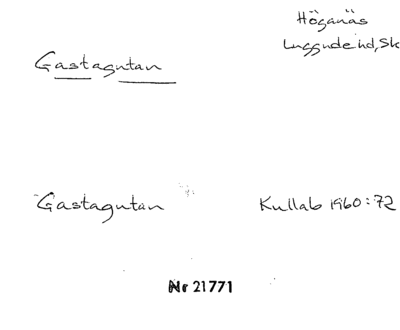 Höganäs
Luggude hd, Sk
Gastagutan
Gastagutan Kullab 1960:72
Nr 21771